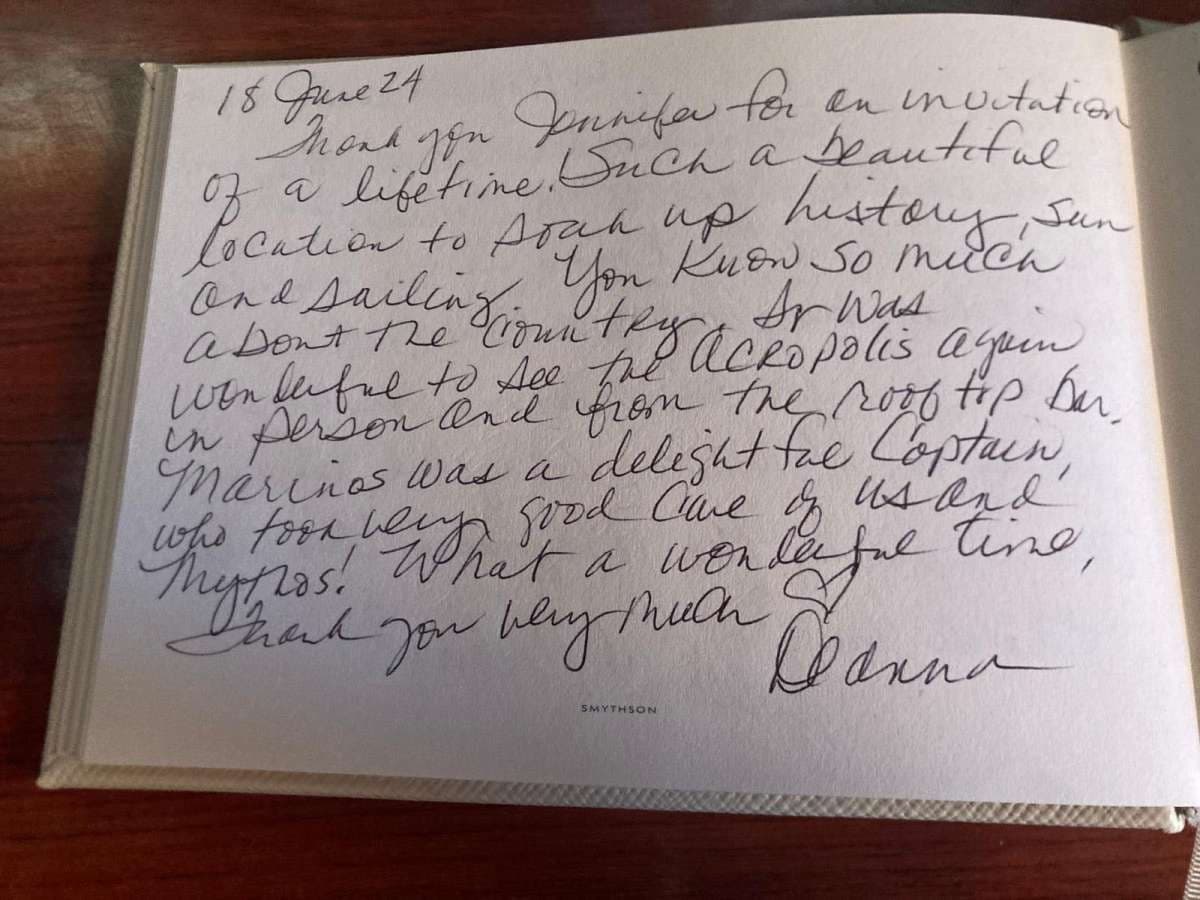 18 June 24
Thank you Jennifer for an invitation
of a lifetime. Such a beautiful
location to soak up history, sun
and sailing. You know so much
about the country. It was
wonderful to see the Acropolis again
in person and from the rooftop bar.
Marinos was a delightful Captain,
who took very good care of us and
Mythos! What a wonderful time,
Thank you very much ♡
Deanna
SMYTHSON